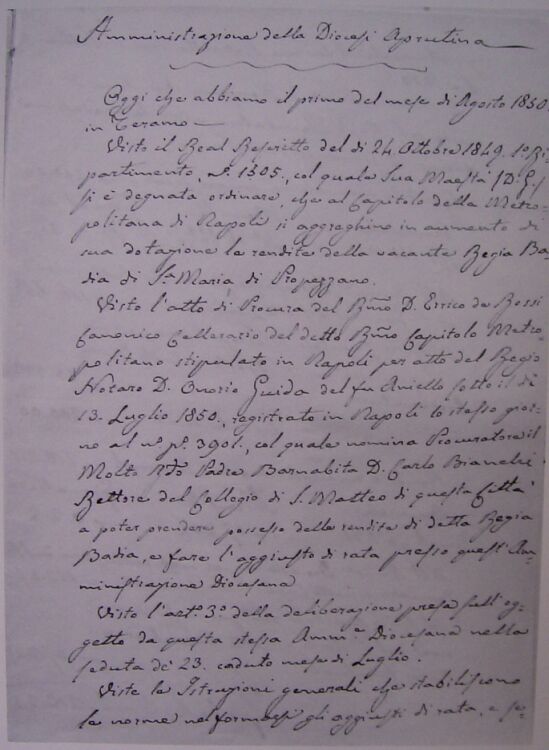 Amministrazione della Diocesi Aprutina
Oggi che abbiamo il primo del mese di Agosto 1850
in Teramo
Visto il Real Rescritto del dì 24 Ottobre 1849. 1º Ri-
partimento, Nº 1305., col quale Sua Maestà (D. G.)
si è degnata ordinare, che al Capitolo della Metro-
politana di Napoli si aggreghino in aumento di
sua dotazione le rendite della vacante Regia Ba-
dia di Sª Maria di Propezzano.
Visto l'atto di Procura del Rmo D. Errico de Rossi
Canonico Cellerario del detto Rmo Capitolo Metro-
politano stipulato in Napoli per atto del Regio
Notaro D. Onorio Guida del fu Aniello sotto il dì
13. Luglio 1850., registrato in Napoli lo stesso gior-
no al nº pº 3901., col quale nomina Procuratore il
Molto Rdo Padre Barnabita D. Carlo Bianchi
Rettore del Collegio di S. Matteo di questa Città
a poter prendere possesso delle rendite di detta Regia
Badia, e fare l'aggiusto di rata presso quest'Am-
ministrazione Diocesana
Visto l'artº 3º della deliberazione presa sull'og-
getto da questa stessa Ammne Diocesana nella
seduta de' 23. caduto mese di Luglio.
Viste le Istruzioni generali che stabiliscono
le norme nel formarsi gli aggiusti di rata, e se-